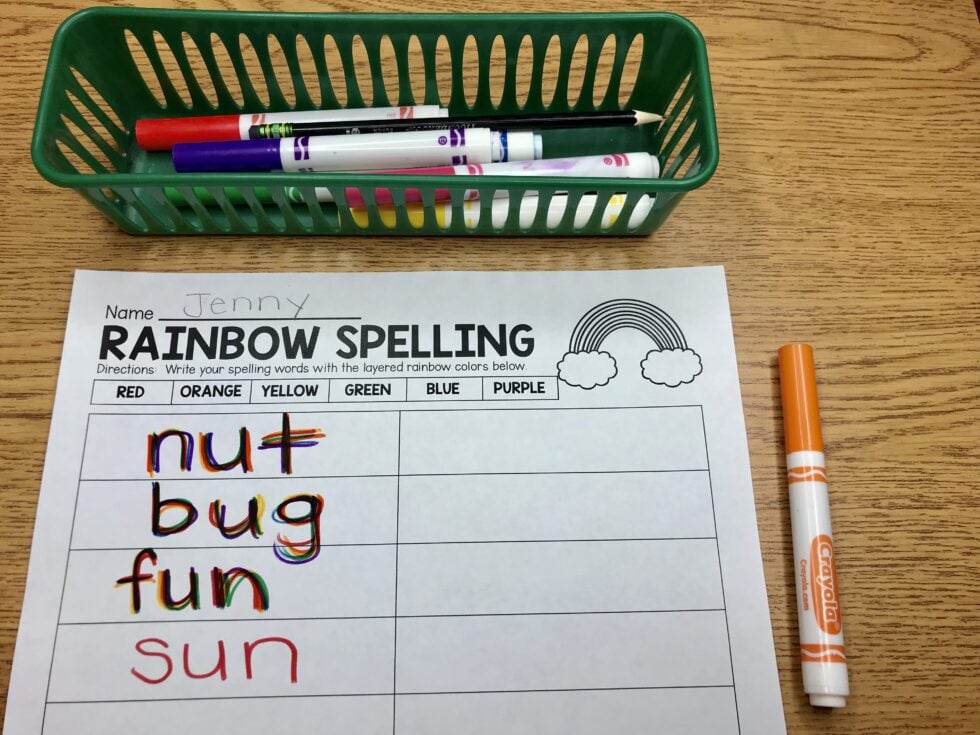 Name Jenny
RAINBOW SPELLING
Directions: Write your spelling words with the layered rainbow colors below.
RED ORANGE YELLOW GREEN BLUE PURPLE
nut
bug
fun
sun
Crayola
Crayola.com